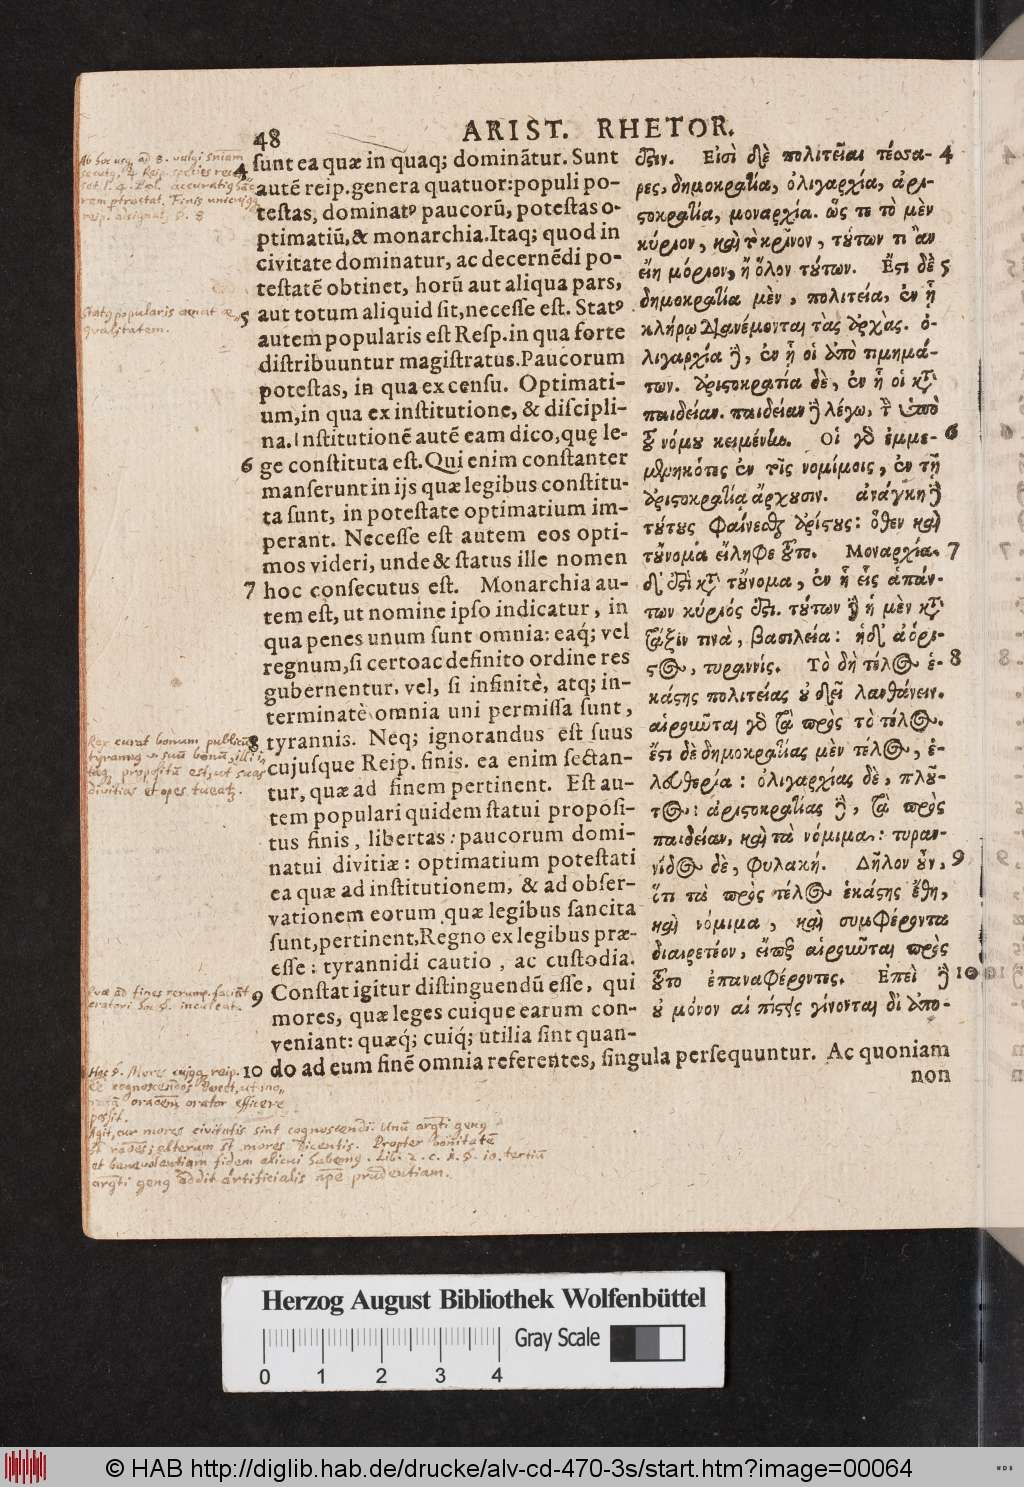 48 ARIST. RHETOR.
4 sunt ea quæ in quaq; dominãtur. Sunt
autẽ reip. genera quatuor: populi po-
testas, dominatꝰ paucorũ, potestas o-
ptimatiũ, & monarchia. Itaq; quod in
civitate dominatur, ac decernẽdi po-
testatẽ obtinet, horũ aut aliqua pars,
5 aut totum aliquid sit, necesse est. Statꝰ
autem popularis est Resp. in qua forte
distribuuntur magistratus. Paucorum
potestas, in qua ex censu. Optimati-
um, in qua ex institutione, & discipli-
na. Institutionẽ autẽ eam dico, quę le-
6 ge constituta est. Qui enim constanter
manserunt in ijs quæ legibus constitu-
ta sunt, in potestate optimatium im-
perant. Necesse est autem eos opti-
mos videri, unde & status ille nomen
7 hoc consecutus est. Monarchia au-
tem est, ut nomine ipso indicatur, in
qua penes unum sunt omnia: eaq́; vel
regnum, si certo ac definito ordine res
gubernentur. vel, si infinitè, atq; in-
terminatè omnia uni permissa sunt,
8 tyrannis. Neq; ignorandus est suus
cujusque Reip. finis. ea enim sectan-
tur, quæ ad finem pertinent. Est au-
tem populari quidem statui proposi-
tus finis, libertas: paucorum domi-
natui divitiæ: optimatium potestati
ea quæ ad institutionem, & ad obser-
vationem eorum quæ legibus sancita
sunt, pertinent, Regno ex legibus præ-
esse: tyrannidi cautio, ac custodia.
9 Constat igitur distinguendũ esse, qui
mores, quæ leges cuique earum con-
veniant: quæq́; cuiq́; utilia sint quan-
10 do ad eum finẽ omnia referentes, singula persequuntur. Ac quoniam
non
ἐστιν. Εἰσὶ δὲ πολιτεῖαι τέσσα- 4
ρες, δημοκρατία, ὀλιγαρχία, ἀρι-
στοκρατία, μοναρχία. ὥς τε τὸ μὲν
κύριον, καὶ τὸ κρῖνον, τούτων τι ἂν
εἴη μόριον, ἢ ὅλον τούτων. Ἔστι δὲ 5
δημοκρατία μὲν, πολιτεία, ἐν ᾗ
κλήρῳ διανέμονται τὰς ἀρχὰς. ὀ-
λιγαρχία δὲ, ἐν ᾗ οἱ ἀπὸ τιμημά-
των. ἀριστοκρατία δὲ, ἐν ᾗ οἱ κατὰ
παιδείαν. παιδείαν δὲ λέγω, τὴν ὑπὸ
τοῦ νόμου κειμένην. Οἱ γὰρ ἐμμε- 6
μενηκότες ἐν τοῖς νομίμοις, ἐν τῇ
ἀριστοκρατίᾳ ἄρχουσιν. ἀνάγκη δὲ
τούτους φαίνεσθαι ἀρίστους: ὅθεν καὶ
τοὔνομά εἴληφε τοῦτο. Μοναρχία. 7
δ' ἐστὶ κατὰ τοὔνομα, ἐν ᾗ εἷς ἁπάν-
των κύριός ἐστι. τούτων δὲ ἡ μὲν κατὰ
τάξιν τινὰ, βασιλεία: ἡ δ' ἀόρι-
στος, τυραννίς. Τὸ δὴ τέλος ἑ- 8
κάστης πολιτείας οὐ δεῖ λανθάνειν.
αἱροῦνται γὰρ τὰ πρὸς τὸ τέλος.
ἔστι δὲ δημοκρατίας μὲν τέλος, ἐ-
λευθερία: ὀλιγαρχίας δὲ, πλοῦ-
τος: ἀριστοκρατίας δὲ, τὰ πρὸς
παιδείαν, καὶ τὰ νόμιμα: τυραν-
νίδος δὲ, φυλακή. Δῆλον οὖν, 9
ὅτι τὰ πρὸς τέλος ἑκάστης ἔθη,
καὶ νόμιμα, καὶ συμφέροντα
διαιρετέον, εἴπερ αἱροῦνται πρὸς
τοῦτο ἐπαναφέροντες. Ἐπεὶ δὲ 10
οὐ μόνον αἱ πίστεις γίνονται δι' ἀπο-
Statꝰ popularis amat æ-
qualitatem.
Rex curat bonum publicũ
Herzog August Bibliothek Wolfenbüttel
Gray Scale
0 1 2 3 4
© HAB http://diglib.hab.de/drucke/alv-cd-470-3s/start.htm?image=00064